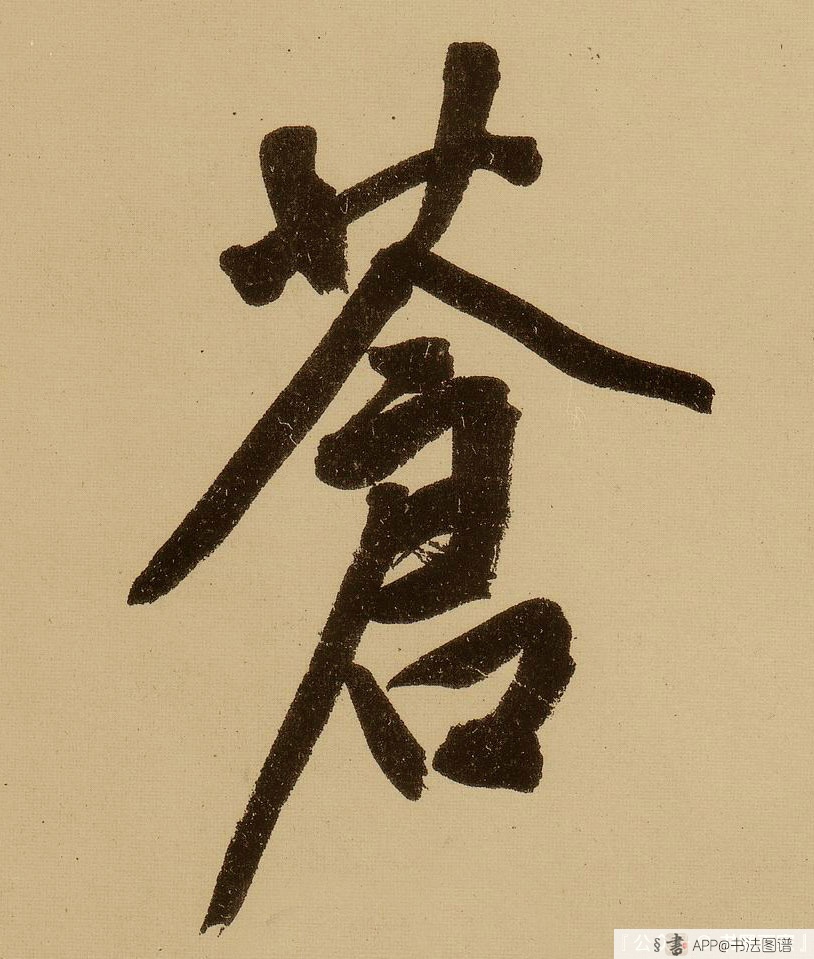 蒼
§書 APP@书法图谱